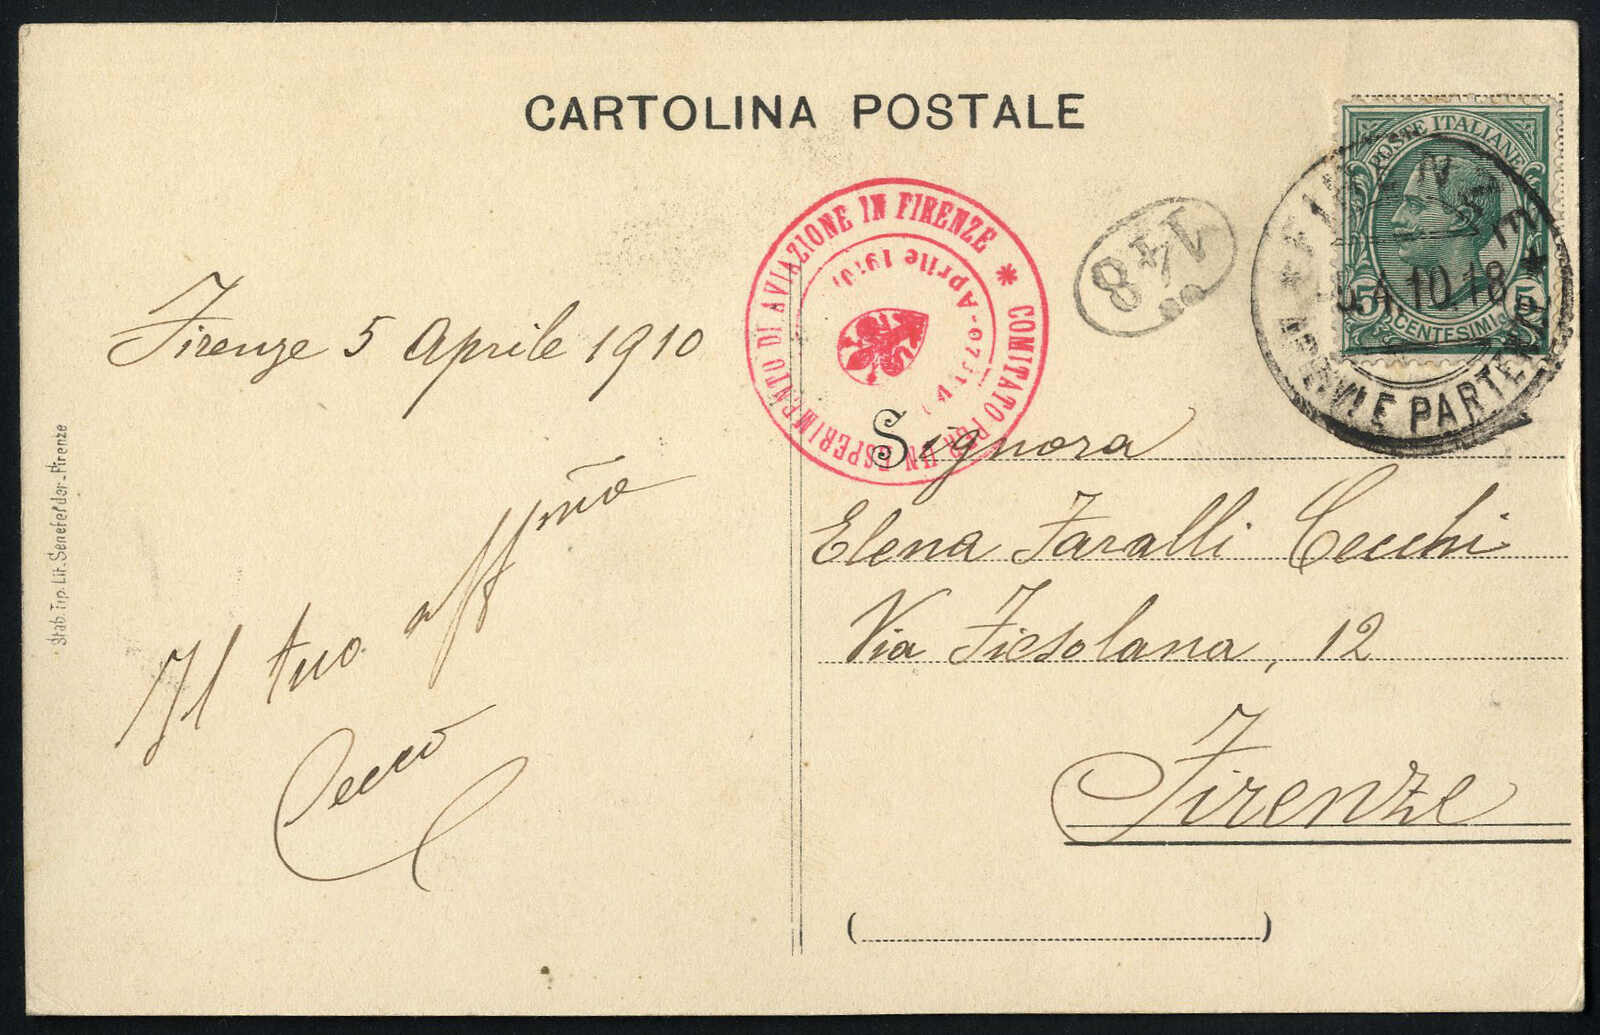 CARTOLINA POSTALE
POSTE ITALIANE
5 CENTESIMI 5
5.4.10.18
ARRIVI E PARTENZE
148
COMITATO PER UN ESPERIMENTO DI AVIAZIONE IN FIRENZE *
Aprile 1910
Firenze 5 Aprile 1910
Il tuo affmo
Signora
Elena Faralli Cecchi
Via Fiesolana, 12
Firenze
( )
Stab. Tip. Lit. Senefelder-Firenze